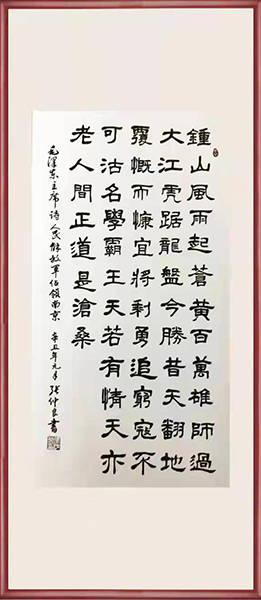 鍾山風雨起蒼黃百萬雄師過
大江虎踞龍盤今勝昔天翻地
覆慨而慷宜將剩勇追窮寇不
可沽名學霸王天若有情天亦
老人間正道是滄桑
毛澤东主席诗人民解放軍佔領南京 辛丑年元月張仲良書